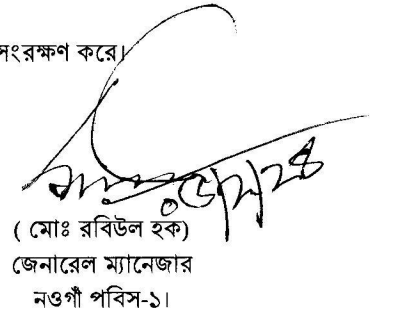 সংরক্ষণ করে।
( মোঃ রবিউল হক)
জেনারেল ম্যানেজার
নওগাঁ পবিস-১।